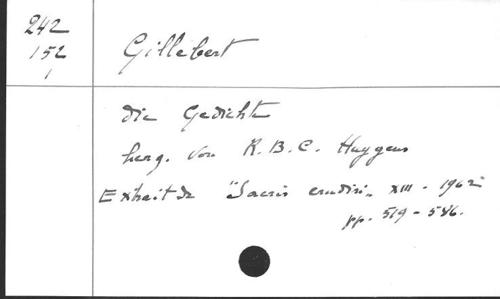 242
152
1
Gillebert
Die Gedichte
herg. von R.B.C. Huygens
Extrait de "Sacris erudiri" XIII - 1962
pp. 519 - 586.